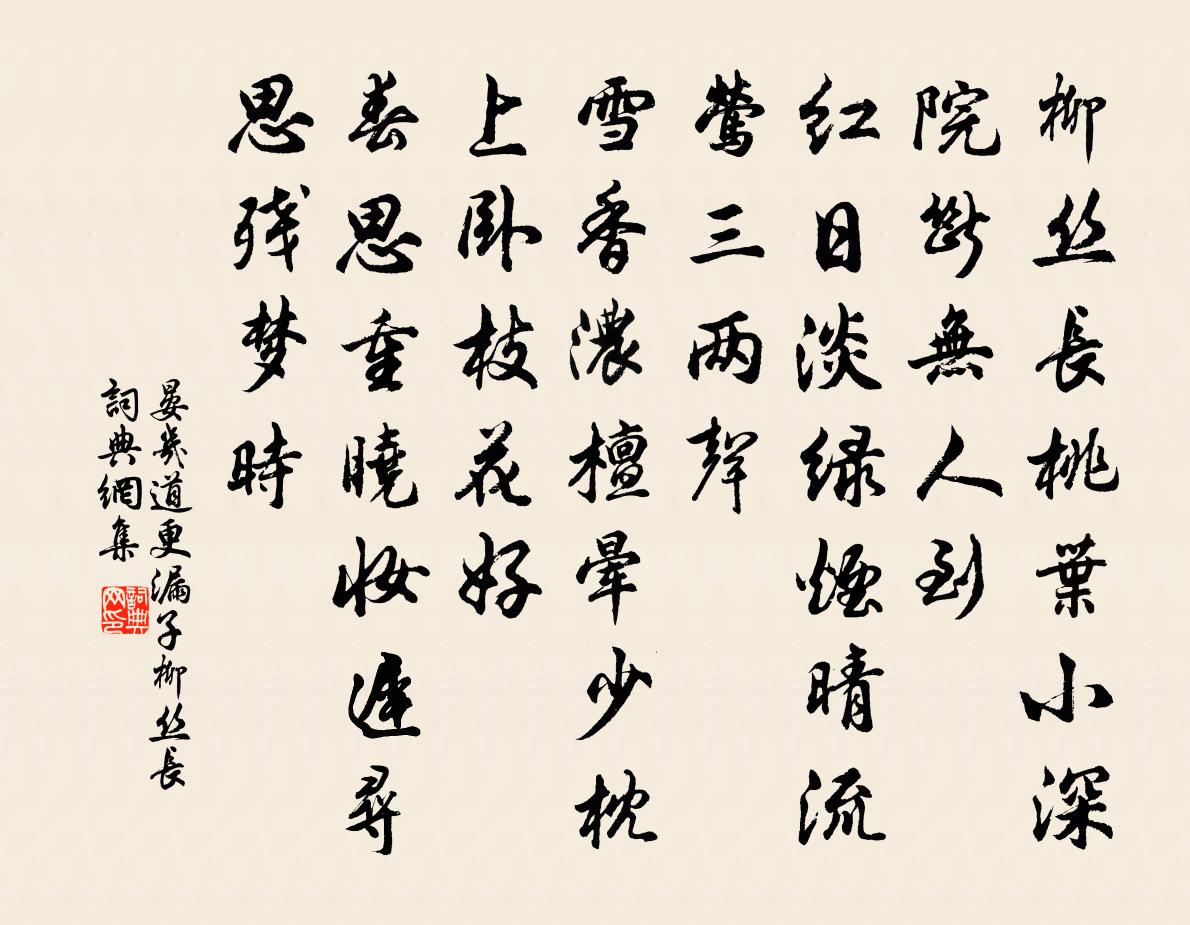 柳丝長桃葉小深
院斷無人到
红日淡绿烟晴流
鶯三两聲
雪香濃檀暈少枕
上卧枝花好
春思重曉妆遲尋
思残梦時
晏幾道更漏子柳丝長
詞典網集
詞典网印